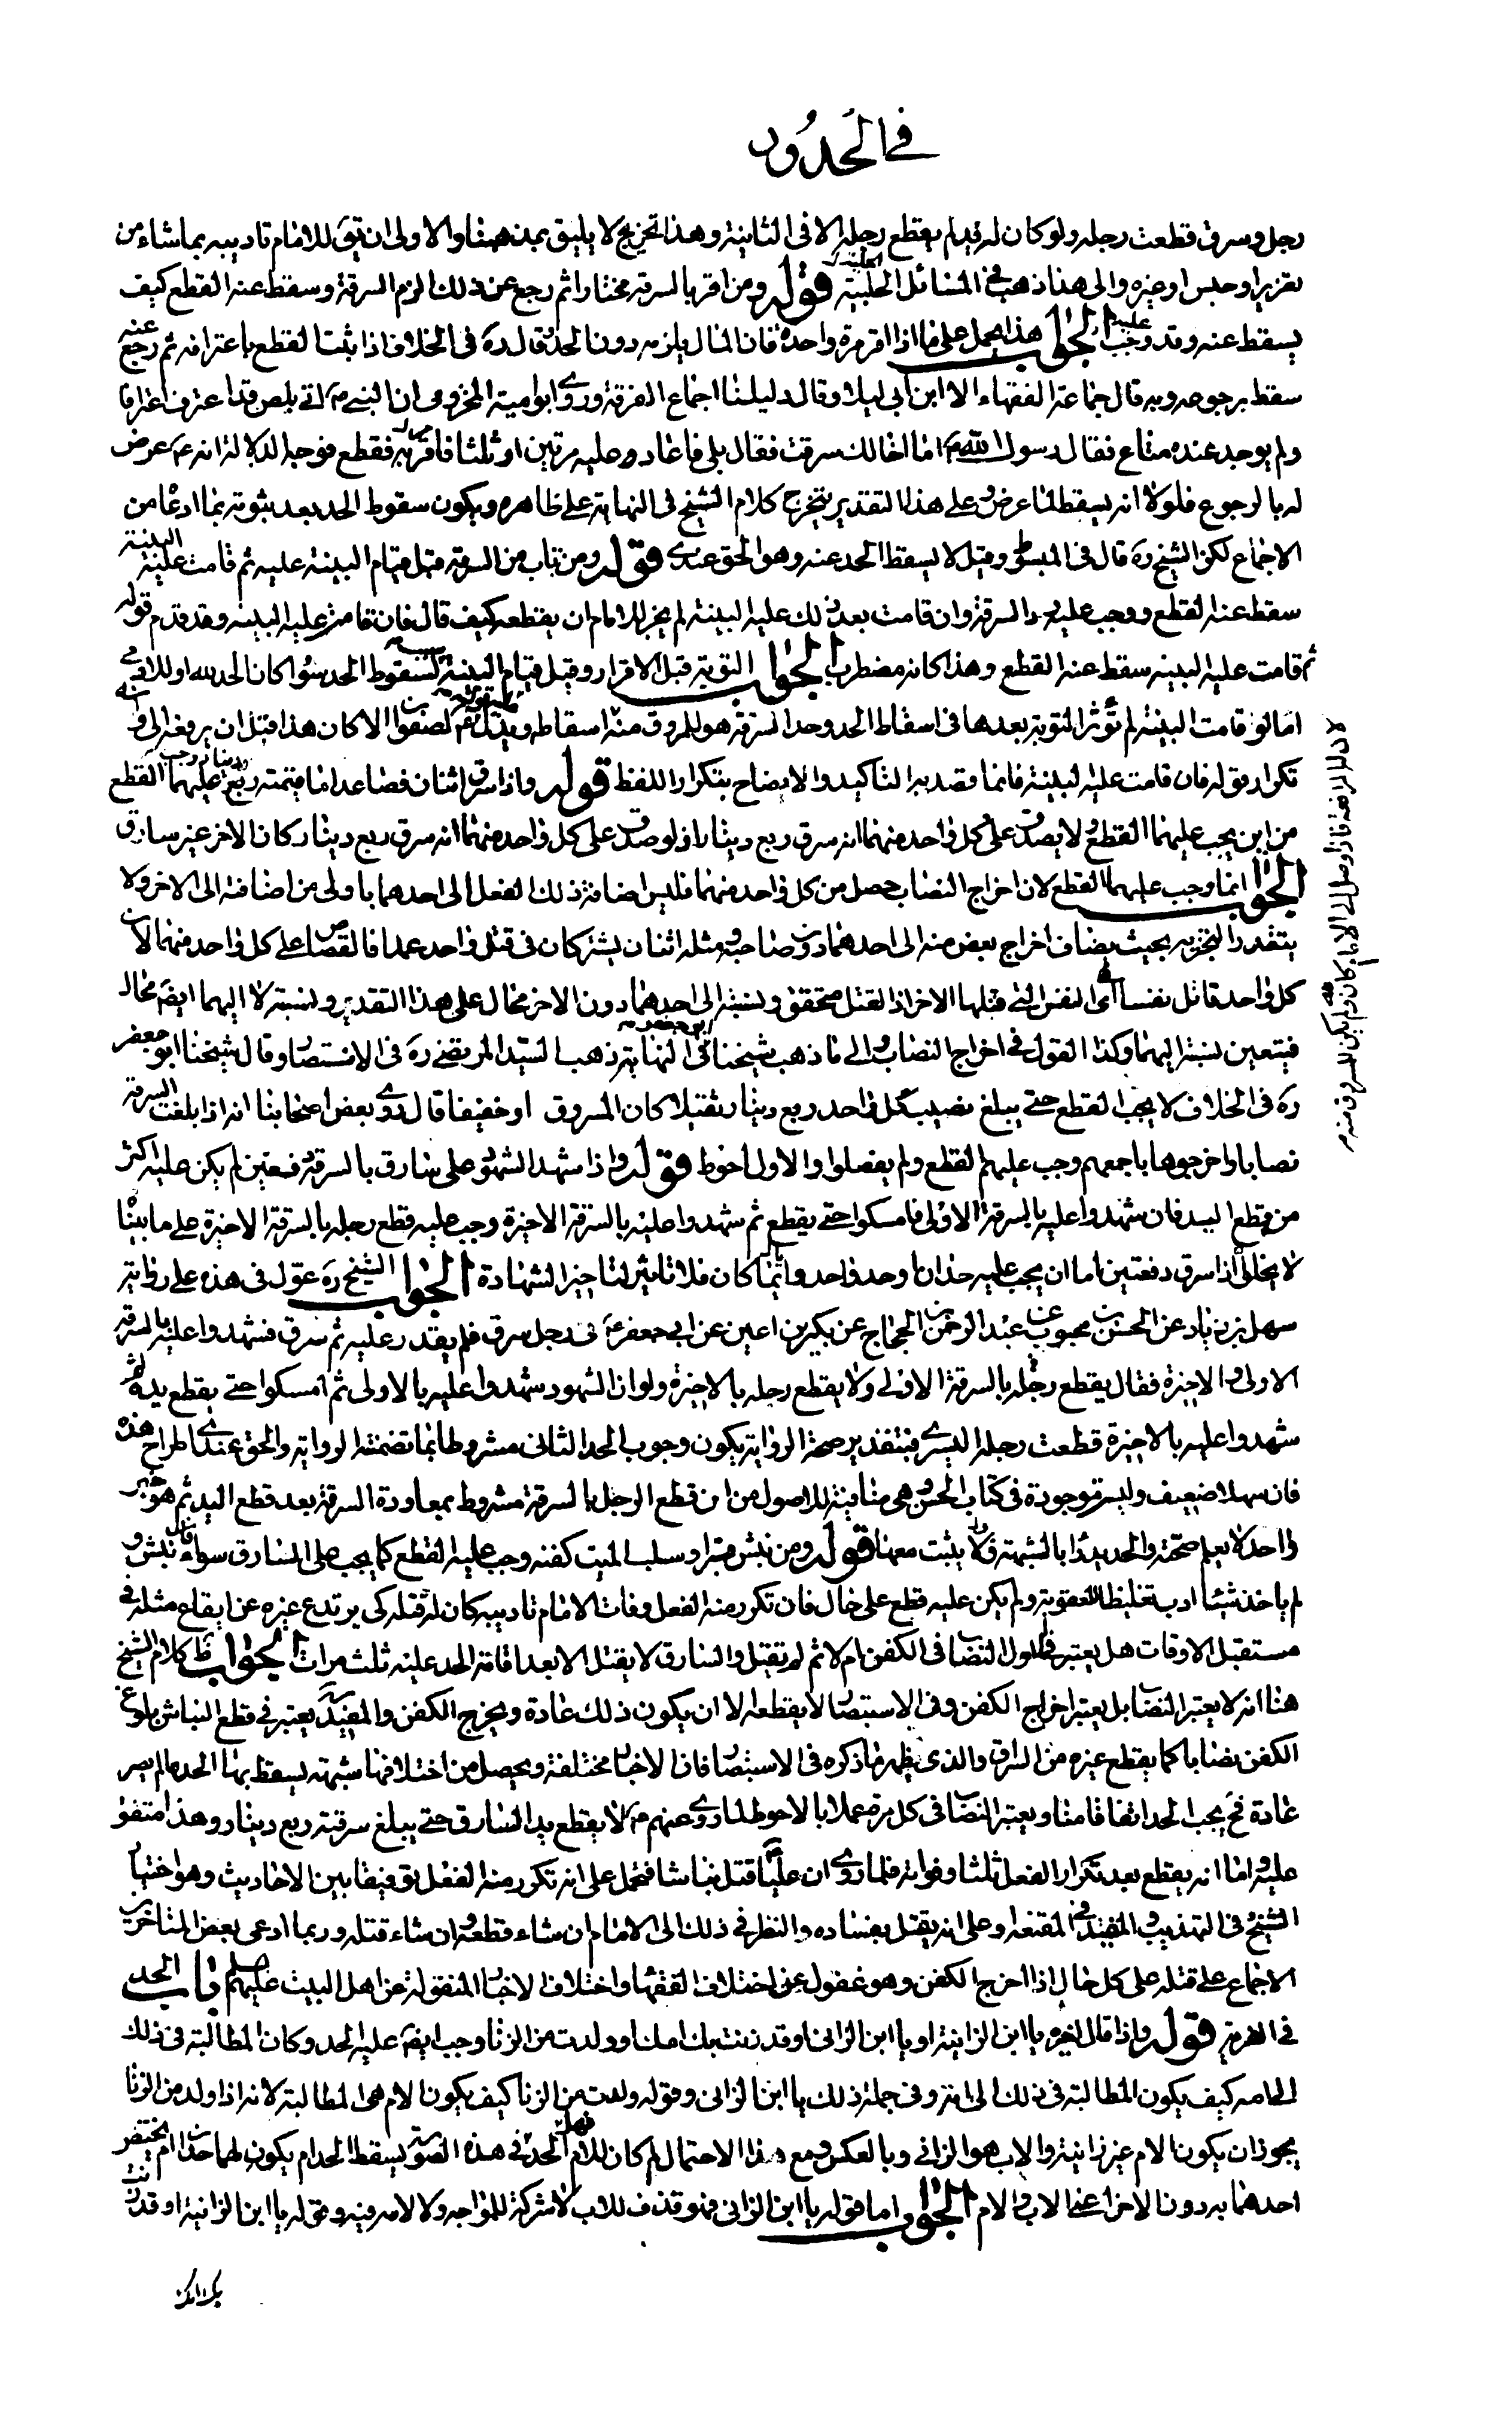 في الحدود
رجل وسرق قطعت رجله ولو كان له يد لم يقطع رجله الا في الثانية وهذا تخريج لا يليق بمذهبنا والاولى ان يق للامام تاديبه بما شاء من
تعزير او حبس او غيره والى هذا ذهب في المسائل الحلبية قوله ومن اقر بالسرقة مختارا ثم رجع عن ذلك الزم السرقة وسقط عنه القطع كيف
يسقط عنه وقد وجب عليه الجواب هذا يحمل على ما اذا اقر مرة واحدة فان المال يلزمه دون الحد وقال ره في الخلاف اذا ثبت القطع باعترافه ثم رجع عنه
سقط برجوعه وبه قال جماعة الفقهاء الا ابن ابي ليلا وقال دليلنا اجماع الفرقة وروى ابو امية المخزومي ان النبي ص اتي بلص قد اعترف اعترافا
ولم يوجد عنده متاع فقال رسول الله ص ما اخالك سرقت فقال بلى فاعاد عليه مرتين او ثلثا فامر به فقطع فوجه الدلالة انه ع عرض
له بالرجوع فلولا انه يسقط لما عرض وعلى هذا التقدير يتخرج كلام الشيخ في النهاية على ظاهره ويكون سقوط الحد بعد ثبوته بما ادعاه من
الاجماع لكن الشيخ ره قال في المبسوط وقيل لا يسقط الحد عنه وهو الحق عندي قوله ومن تاب من السرقة قبل قيام البينة عليه ثم قامت عليه البينة
سقط عنه القطع ووجب عليه رد السرقة وان قامت بعد ذلك عليه البينة لم يجز للامام ان يقطعه كيف قال فان قامت عليه البينه وقد قدم قوله
ثم قامت عليه البينه سقط عنه القطع وهذا كانه مضطرب الجواب التوبة قبل الاقرار وقبل قيام البينة لسقوط الحد سواء كان الحد لله او للادمي
اما لو قامت البينة لم تؤثر التوبة بعدها في اسقاط الحد وحد السرقة هو للمسروق منه اسقاطه الا كان هذا قبل ان يرفعه الى
تكرار قوله فان قامت عليه البينة فانما قصد به التاكيد والايضاح بتكرار اللفظ قوله واذا سرق اثنان فصاعدا ما قيمته ربع دينار وجب عليهما القطع
من اين يجب عليهما القطع ولا يصدق على كل واحد منهما انه سرق ربع دينار اذ لو صدق على كل واحد منهما انه سرق ربع دينار كان الاخر غير سارق
الجواب انما وجب عليهما القطع لان اخراج النصاب حصل من كل واحد منهما فليس اضافة ذلك الفعل الى احدهما باولى من اضافته الى الاخر ولا
يتقدر التجزية بحيث يضاف اخراج بعض منه الى احدهما دون صاحبه ومثله اثنان يشتركان في قتل واحد عمدا فالقصاص على كل واحد منهما لان
كل واحد قاتل نفسا اى النفس التي قتلها الاخر اذ القتل متحقق ونسبته الى احدهما دون الاخر محال على هذا التقدير ونسبته لا اليهما ايضا محال
فيتعين نسبته اليهما وكذا القول في اخراج النصاب والى ما ذهب شيخنا في النهاية ذهب السيد المرتضى ره في الانتصار وقال شيخنا ابو جعفر
ره في الخلاف لا يجب القطع حتى يبلغ نصيب كل واحد ربع دينار ثقيلا كان المسروق او خفيفا قال وروى بعض اصحابنا انه اذا بلغت السرقة
نصابا واخرجوها باجمعهم وجب عليهم القطع ولم يفصلوا والاول احوط قوله واذا شهد الشهود على سارق بالسرقة دفعتين لم يكن عليه اكثر
من قطع اليد فان شهدوا عليه بالسرقة الاولى فامسكوا حتى يقطع ثم شهدوا عليه بالسرقة الاخيرة وجب عليه قطع رجله بالسرقة الاخيرة على ما بيناه
لا يخلو اذا سرق دفعتين اما ان يجب عليه حدان او حد واحد وايما كان فلا تاثير لتاخير الشهادة الجواب الشيخ ره عول في هذه على رواية
سهل بن زياد عن الحسن بن محبوب عن عبد الرحمن بن الحجاج عن بكير بن اعين عن ابي جعفر ع في رجل سرق فلم يقدر عليه ثم سرق فشهدوا عليه بالسرقة
الاولى والاخيرة فقال يقطع رجله بالسرقة الاولى ولا يقطع رجله بالاخيرة ولو ان الشهود شهدوا عليه بالاولى ثم امسكوا حتى يقطع يده ثم
شهدوا عليه بالاخيرة قطعت رجله اليسرى فبتقدير صحة الرواية يكون وجوب الحد الثاني مشروطا بما تضمنته الرواية والحق عندي اطراح هذه
فان سهلا ضعيف وليس موجودة في كتاب الحسن وهي منافية للاصول من ان قطع الرجل بالسرقة مشروط بمعاودة السرقة بعد قطع اليد ثم هو خبر
واحد لا يعلم صحته والحد يدرا بالشبهة ولا يثبت معها قوله ومن نبش قبرا وسلب الميت كفنه وجب عليه القطع كما يجب على السارق سواء فان نبش و
لم ياخذ شيئا ادب تغليظا للعقوبة ولم يكن عليه قطع على حال فان تكرر منه الفعل وفات الامام تاديبه كان له قتله كي يرتدع غيره عن ايقاع مثله في
مستقبل الاوقات هل يعتبر النصاب في الكفن ام لا ثم لم يقتل والسارق لا يقتل الا بعد اقامة الحد عليه ثلث مرات الجواب ظ كلام الشيخ
هنا انه لا يعتبر النصاب بل يعتبر اخراج الكفن وفي الاستبصار لا يقطعه الا ان يكون ذلك عادة ويخرج الكفن والمفيد يعتبر في قطع النباش بلوغ
الكفن نصابا كما يقطع غيره من السراق والذي يظهر ما ذكره في الاستبصار فان الاخبار مختلفة ويحصل من اختلافها شبهة يسقط بها الحد ما لم يصر
عادة فح يجب الحد اتفاقا منا ويعتبر النصاب في كل مرة عملا بالاحوط لما روى عنهم ع لا يقطع يد السارق حتى يبلغ سرقته ربع دينار وهذا متفق
عليه واما انه يقطع بعد تكرار الفعل ثلثا وفواته فلما روى ان عليا قتل نباشا فتحمل على انه تكرر منه الفعل توفيقا بين الاحاديث وهو اختيار
الشيخ في التهذيب والمفيد في المقنعة وعلى انه يقتل بفساده والنظر في ذلك الى الامام ان شاء قطعه وان شاء قتله وربما ادعى بعض المتاخرين
الاجماع على قتله على كل حال اذا اخرج الكفن وهو غفول عن اختلاف الفقهاء واختلاف الاخبار المنقولة عن اهل البيت عليهم باب الحد
في الفرية قوله واذا قال لغيره يا ابن الزانية او يا ابن الزاني او قد زنت بك امك او ولدت من الزنا وجب ايضا عليه الحد وكان المطالبة في ذلك
الى امه كيف يكون المطالبة في ذلك الى امه وفي جملة ذلك يا ابن الزاني وقوله ولدت من الزنا كيف يكون الام هي المطالبة لانه اذا ولد من الزنا
يجوز ان يكون الام غير زانية والاب هو الزاني وبالعكس ومع هذا الاحتمال لم كان للام الحد في هذه الصورة يسقط الحد ام يكون لهما حدان ام يختص
احدهما به دون الاخر اعني الاب والام الجواب اما قوله يا ابن الزاني فهو قذف للاب لا شركة للمواجه ولا لامه فيه وقوله يا ابن الزانية او قد زنت
بك امك